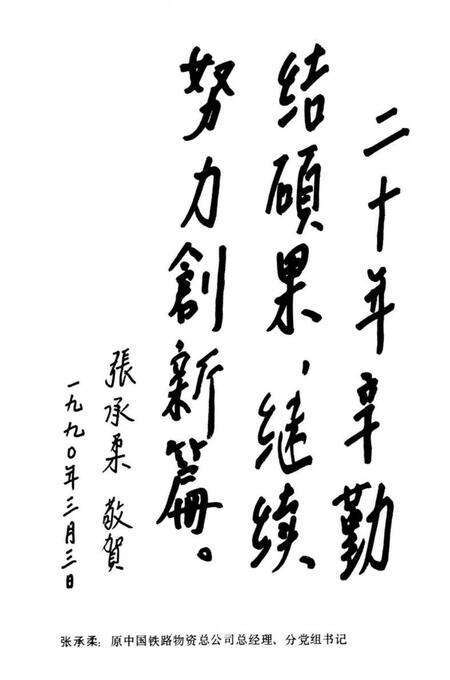 二十年辛勤
结碩果，继续
努力創新篇。
張承柔 敬賀
一九九〇年三月三日
张承柔：原中国铁路物资总公司总经理、分党组书记